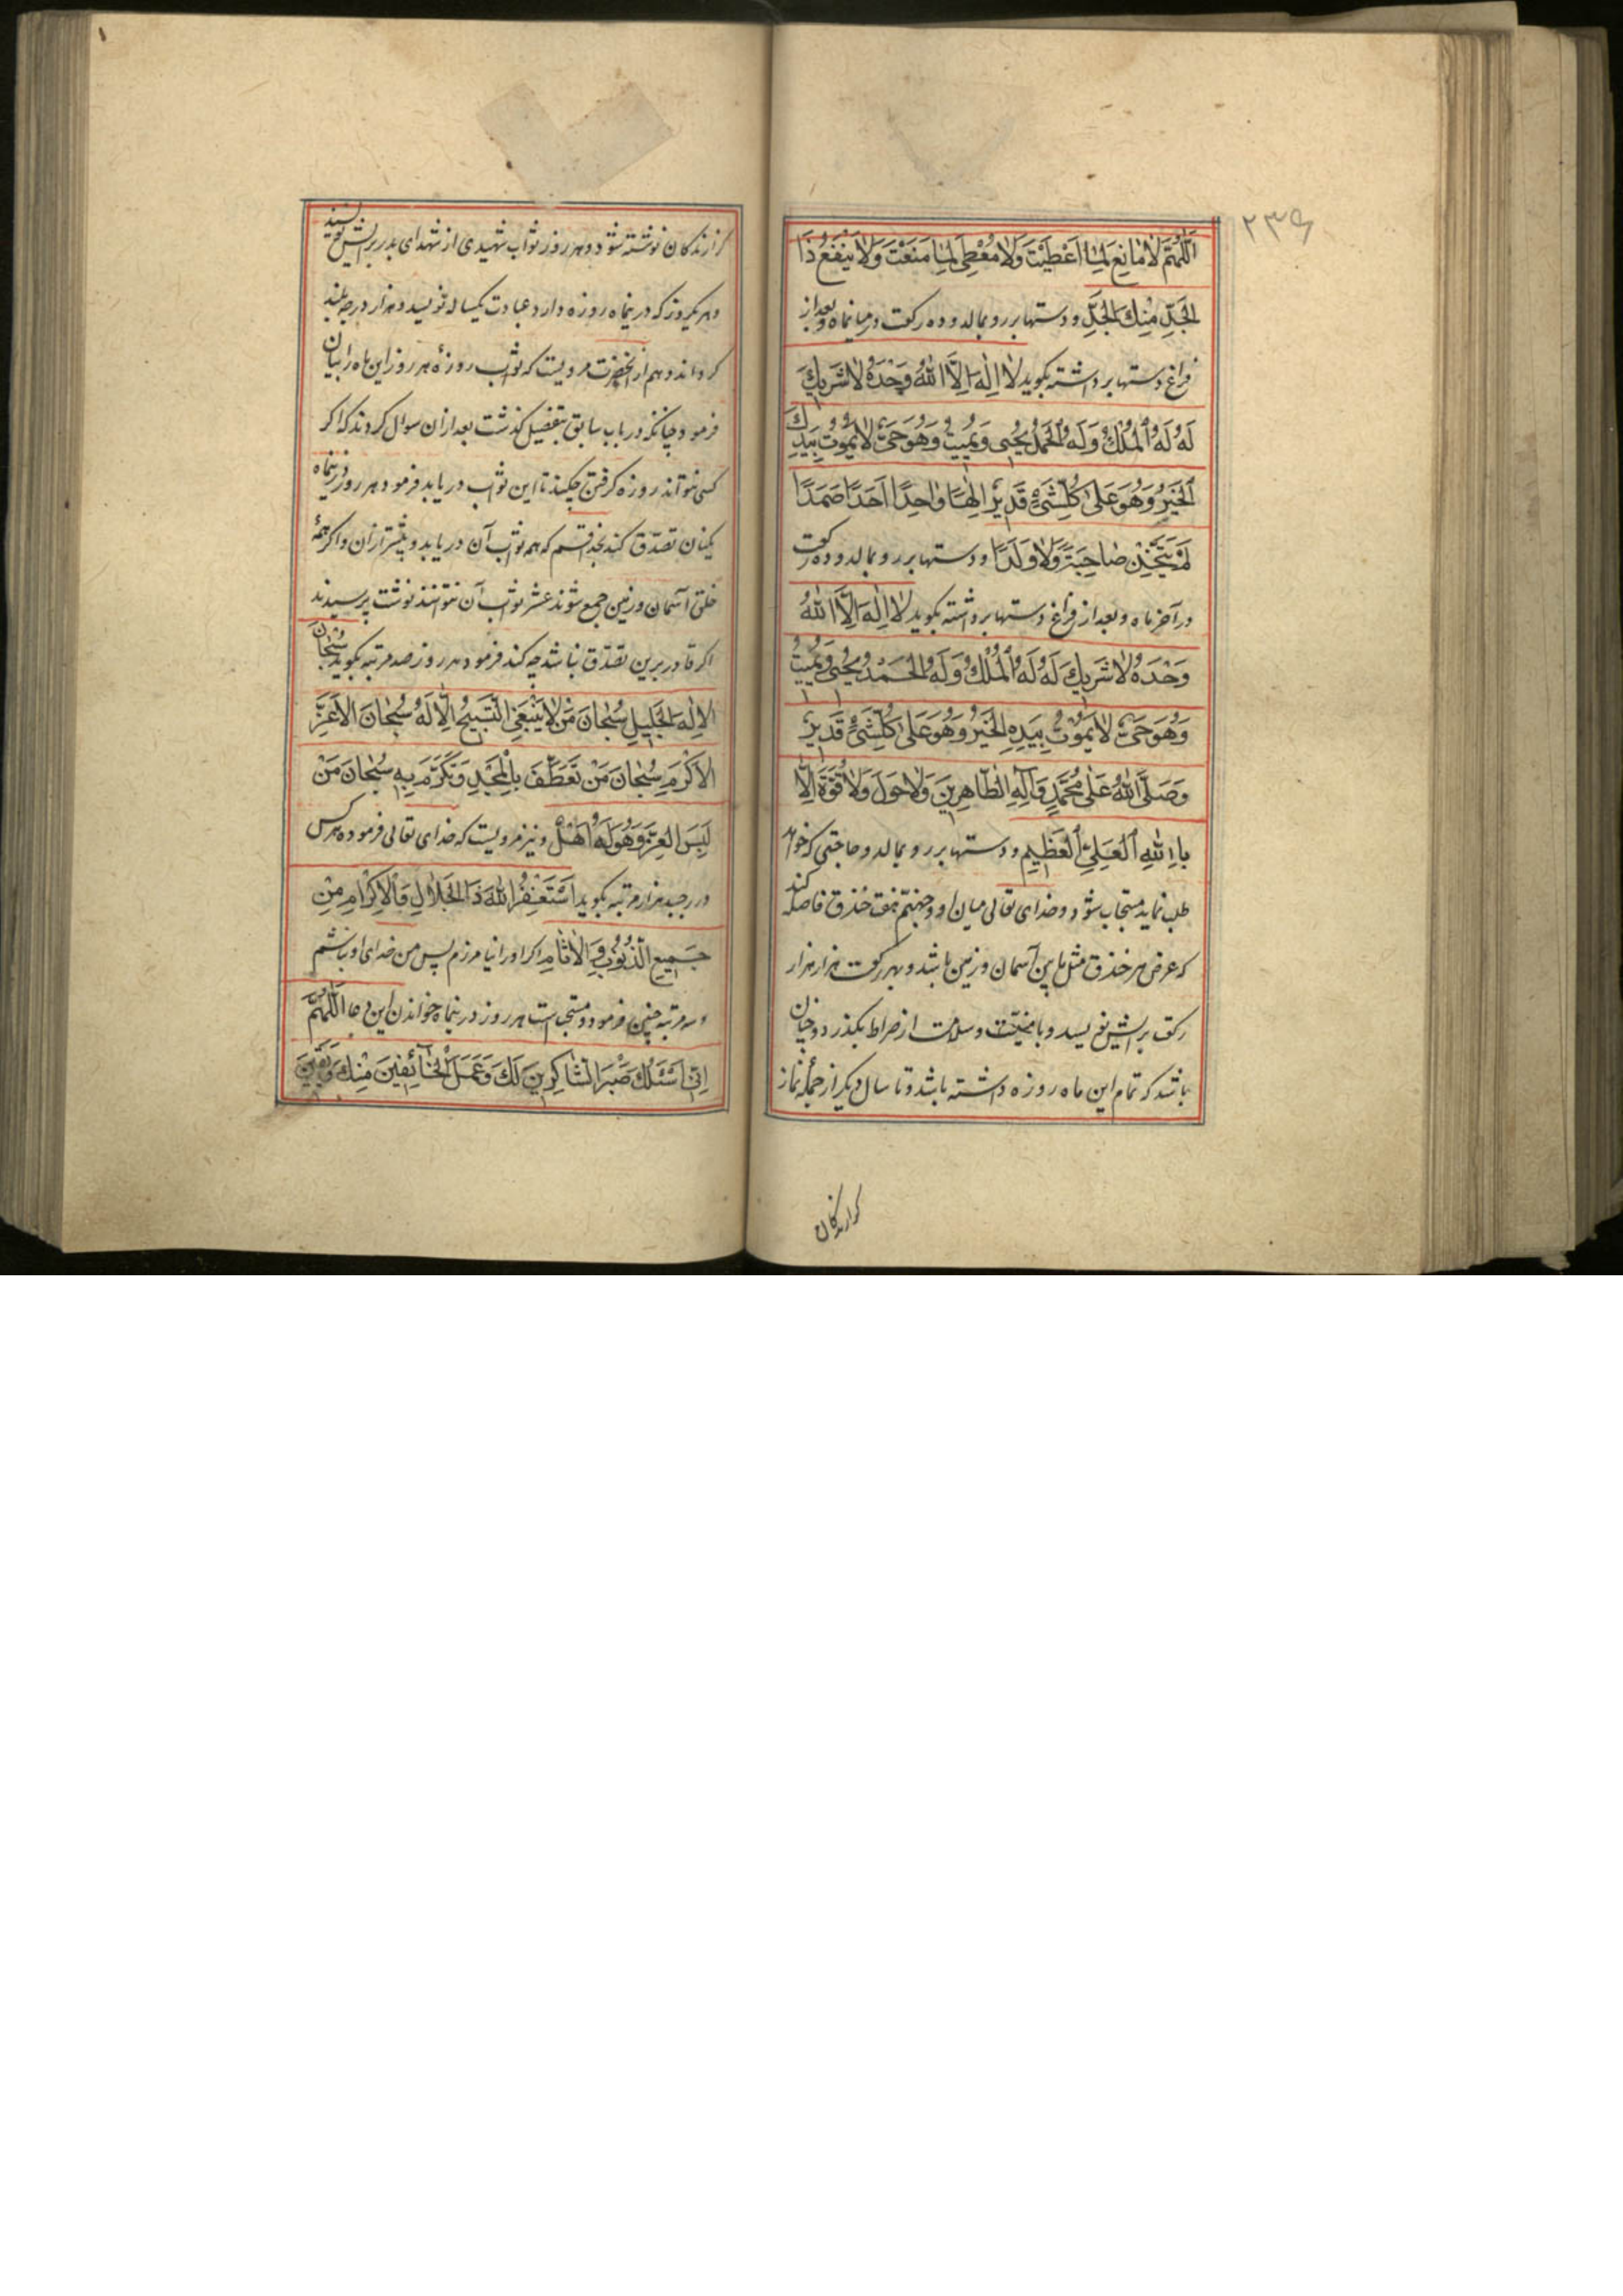 ۲۳۶
اَللّٰهُمَّ لا مانِعَ لِما اَعْطَيْتَ وَلا مُعْطِىَ لِما مَنَعْتَ وَلا يَنْفَعُ ذَا
الجَدِّ مِنْكَ الجَدُّ و دستها بر رو بمالد و ده ركعت در ميانماه و بعد از
فراغ دستها برداشته بكويد لا اِلٰهَ اِلَّا اللهُ وَحْدَهُ لا شَرِيكَ
لَهُ لَهُ الْمُلْكُ وَلَهُ الْحَمْدُ يُحْيى وَيُمِيتُ وَهُوَ حَىٌّ لا يَمُوتُ بِيَدِكَ
الْخَيْرُ وَهُوَ عَلىٰ كُلِّ شَىْءٍ قَدِيرٌ اِلهًا واحِدًا اَحَدًا صَمَدًا
لَمْ يَتَّخِذْ صاحِبَةً وَلا وَلَدًا و دستها بر رو بمالد و ده ركعت
در آخر ماه و بعد از فراغ دستها برداشته بكويد لا اِلٰهَ اِلَّا اللهُ
وَحْدَهُ لا شَرِيكَ لَهُ لَهُ الْمُلْكُ وَلَهُ الْحَمْدُ يُحْيى وَيُمِيتُ
وَهُوَ حَىٌّ لا يَمُوتُ بِيَدِهِ الْخَيْرُ وَهُوَ عَلىٰ كُلِّ شَىْءٍ قَدِيرٌ
وَصَلَّى اللهُ عَلىٰ مُحَمَّدٍ وَآلِهِ الطّاهِرِينَ وَلا حَوْلَ وَلا قُوَّةَ اِلّا
بِاللهِ الْعَلِىِّ الْعَظِيمِ و دستها بر رو بمالد و حاجتى كه خواهد
طلب نمايد مستجاب شود و خداى تعالى ميان او و جهنّم هفت خندق فاصله كند
كه عرض هر خندق مثل مابين آسمان و زمين باشد و بهر ركعت هزار هزار
ركعت برايش نويسد و با سلامت از صراط بكذرد و چنان
باشد كه تمام اين ماه روزه داشته باشد و تا سال ديكر از جملهٔ نماز
كزارندكان
كزارندكان نوشته شود و هر روز ثواب شهيدى از شهداى بدر برايش نويسند
و هر يكروز كه درينماه روزه دارد عبادت يكساله نويسد و هزار درجه بلند
كرداند و هم از آنحضرت مرويست كه ثواب روزهٔ هر روز اين ماه را بيان
فرمود چنانكه در باب سابق بتفضيل كذشت بعد ازان سوال كردند كه اكر
كسى نتواند روزه كرفتن چكند تا اين ثواب دريابد فرمود هر روز درينماه
يكنان تصدّق كند بخدا قسم كه همه ثواب آن دريابد و بيشتر ازان و اكر همهٔ
خلق آسمان و زمين جمع شوند عشر ثواب آن نتوانند نوشت پرسيدند
اكر قادر برين تصدّق نباشد چه كند فرمود هر روز صد مرتبه بكويد سُبْحانَ
الْاِلهِ الْجَلِيلِ سُبْحانَ مَنْ لا يَنْبَغِى التَّسْبِيحُ اِلّا لَهُ سُبْحانَ الْاَعَزِّ
الْاَكْرَمِ سُبْحانَ مَنْ تَعَطَّفَ بِالْمَجْدِ وَتَكَرَّمَ بِهِ سُبْحانَ مَنْ
لَبِسَ الْعِزَّ وَهُوَ لَهُ اَهْلٌ و نيز مرويست كه خداى تعالى فرموده هر كس
در رجب هزار مرتبه بكويد اَسْتَغْفِرُ اللهَ ذَا الْجَلالِ وَالْاِكْرامِ مِنْ
جَمِيعِ الذُّنُوبِ وَالْاٰثامِ اكر او را نيامرزم پس من خداى او نباشم
و سه مرتبه چنين فرمود و مستحبّ است هر روز درينماه خواندن اين دعا اَللّٰهُمَّ
اِنّى اَسْئَلُكَ صَبْرَ الشّاكِرِينَ لَكَ وَعَمَلَ الْخآئِفِينَ مِنْكَ وَيَقِينَ